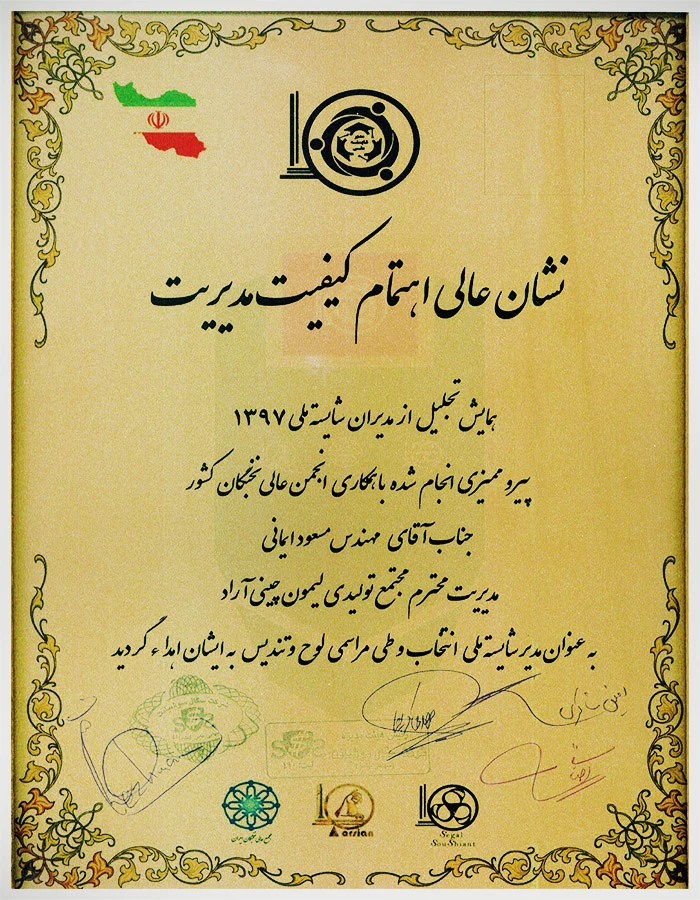 نشان عالی اهتمام کیفیت مدیریت
همایش تجلیل از مدیران شایسته ملی ۱۳۹۷
پیرو ممیزی انجام شده با همکاری انجمن عالی نخبگان کشور
جناب آقای مهندس مسعود ایمانی
مدیریت محترم مجتمع تولیدی لیمون چینی آراد
به عنوان مدیر شایسته ملی انتخاب و طی مراسمی لوح و تندیس به ایشان اهداء گردید
Parsian
Segal
Sou Shiant